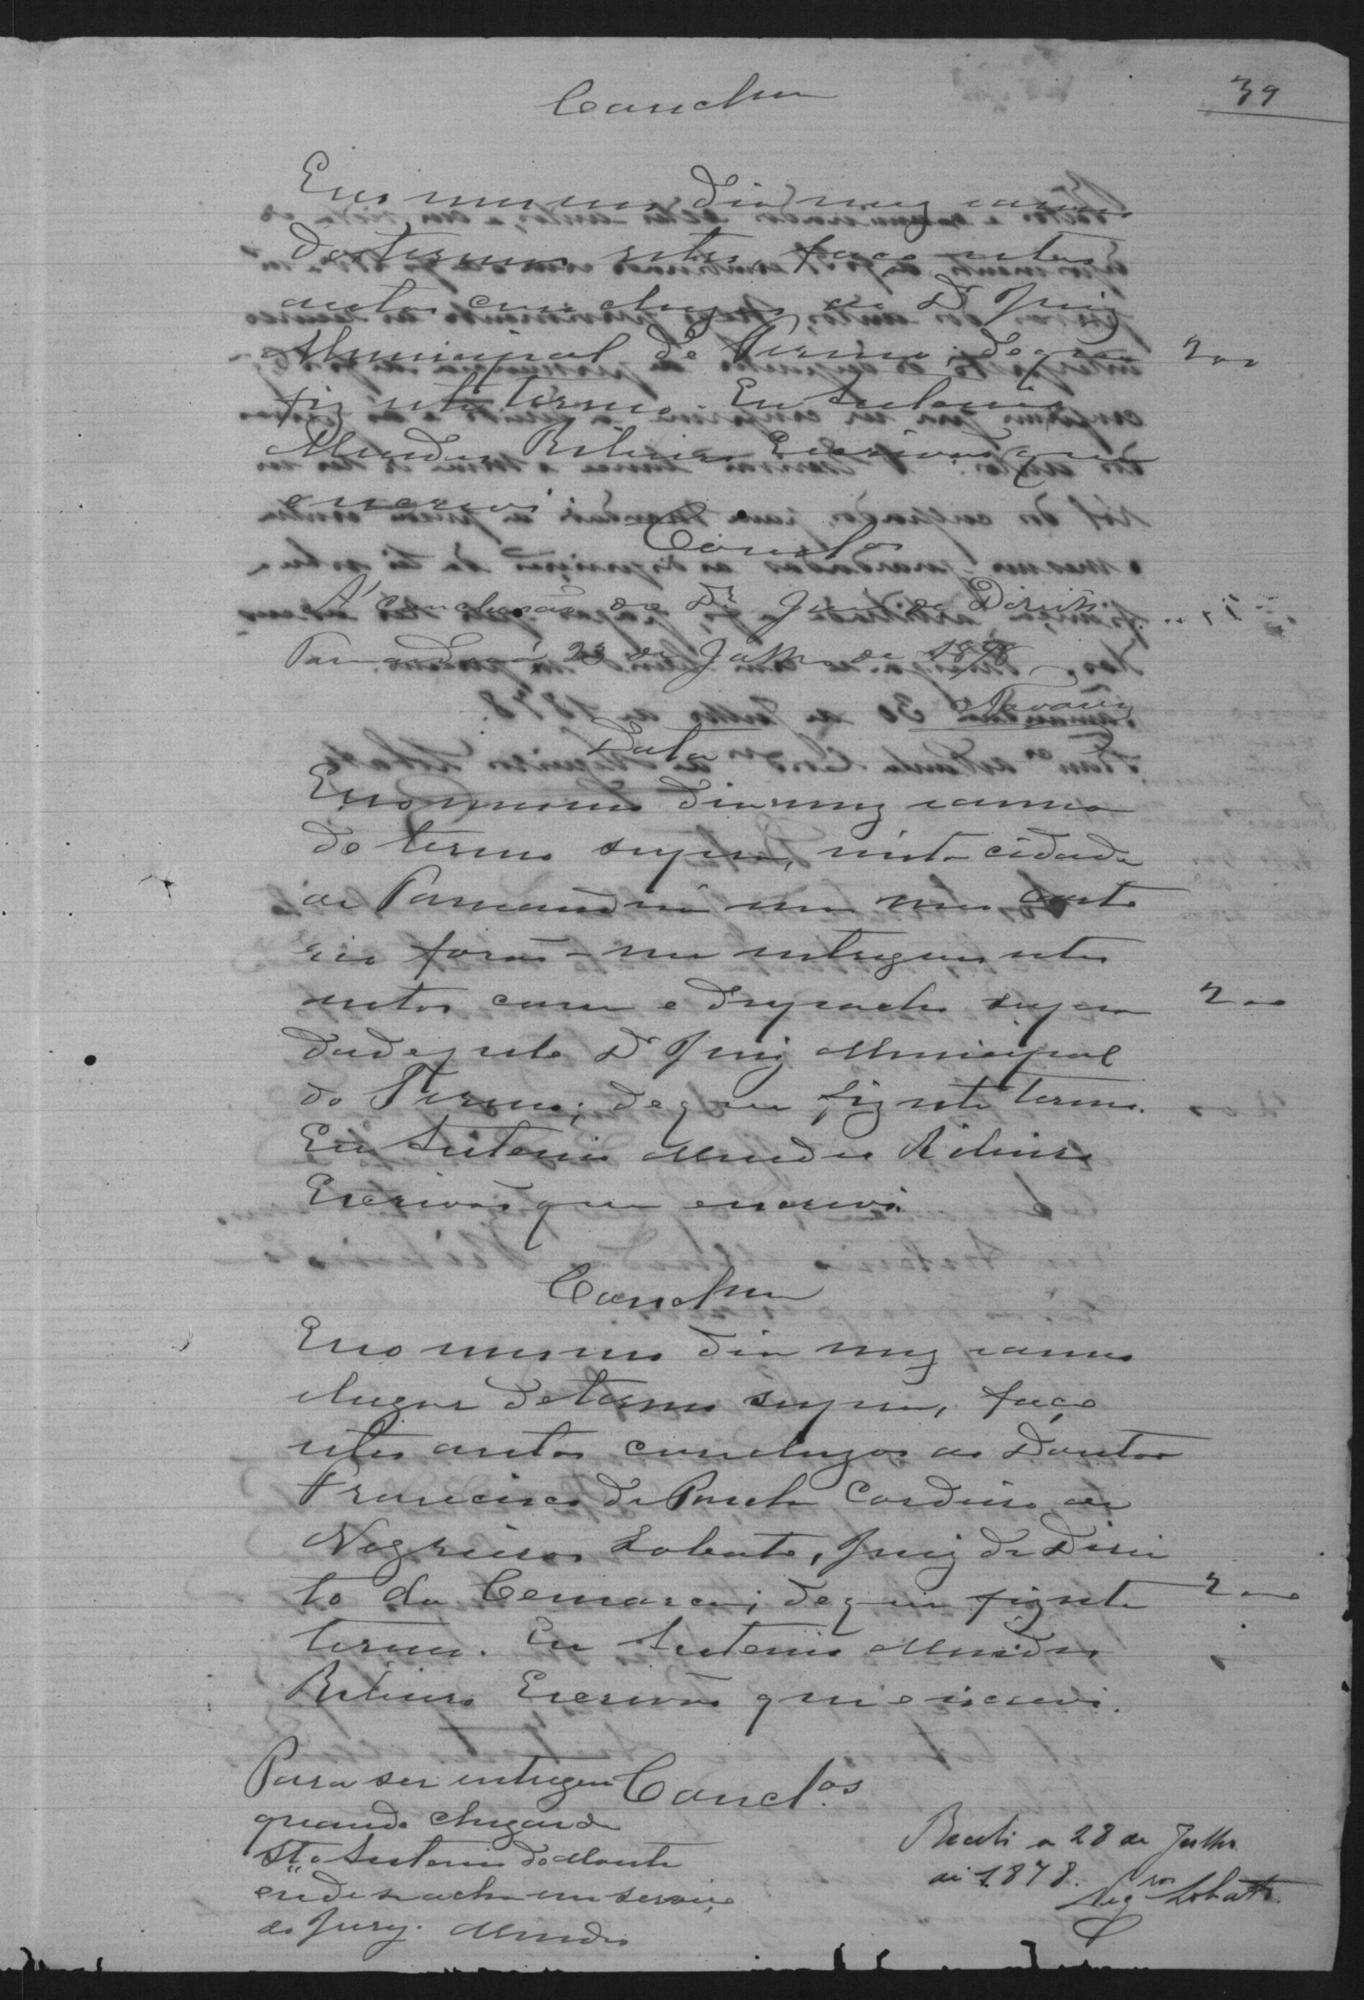 39
Conclusam
E no mesmo dia mez e anno
do termo retro faço estes
autos conclusos ao Dr Juiz
Municipal do Termo; de que
fiz este termo. Eu Antonio
Mendes Ribeiro Escrivão que
escrevi
200
Conclos
A' conclusão do Dr Juiz de Direito
23 de Julho de 1878
Tavares
Data
E no mesmo dia mez e anno
do termo supra, nesta cidade
de Parnandiu em meu carto
rio forão-me entregues estes
autos com o despacho supra
200
dado pelo Dr Juiz Municipal
do Termo; de que fiz este termo.
Eu Antonio Mendes Ribeiro
Escrivão que escrevi.
Conclusam
E no mesmo dia mez e anno
e lugar do termo supra, faço
estes autos concluzos ao Doutor
Francisco de Paula Cordeiro de
Negreiros Lobato, Juiz de Direi
to da Comarca; de que fiz este
200
termo. Eu Antonio Mendes
Ribeiro Escrivão que escrevi.
Para ser entregue
quando chegar de
Sto Antonio do Monte
onde se acha em serviço
do Jury. Mendes
Conclos
Recebi a 28 de Julho
de 1878.
Negros Lobato.